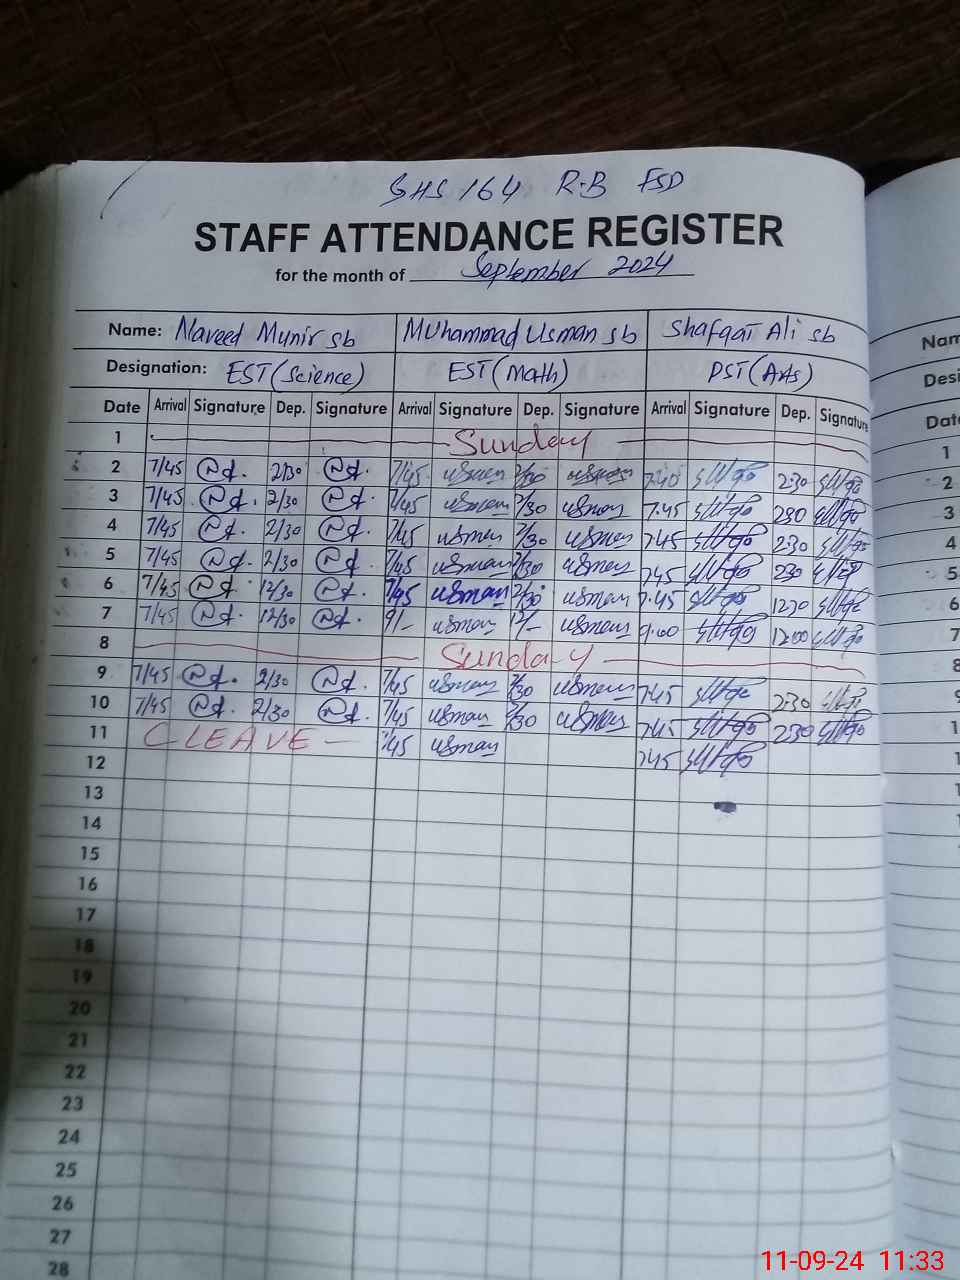 GHS 164 R-B FSD
STAFF ATTENDANCE REGISTER
for the month of September 2024
Name: Naveed Munir sb Muhammad Usman sb Shafqat Ali sb Nam
Designation: EST (Science) EST (Math) PST (Arts) Desi
Date Arrival Signature Dep. Signature Arrival Signature Dep. Signature Arrival Signature Dep. Signature Date
1 Sunday 1
2 7/45 2/30 7/45 usman 2/30 usman 7.45 2.30 2
3 7/45 2/30 7/45 usman 2/30 usman 7.45 230 3
4 7/45 2/30 7/45 usman 2/30 usman 745 230 4
5 7/45 2/30 7/45 usman 2/30 usman 745 230 5
6 7/45 12/30 7/45 usman usman 7.45 1230 6
7 7/45 12/30 9/- usman 12/- usman 9.00 1200 7
8 Sunday 8
9 7/45 2/30 7/45 usman 2/30 usman 745 230 9
10 7/45 2/30 7/45 usman 2/30 usman 745 230 1
11 C LEAVE 7/45 usman 745 1
12 1
13 1
14
15
16
17
18
19
20
21
22
23
24
25
26
27
28
11-09-24 11:33